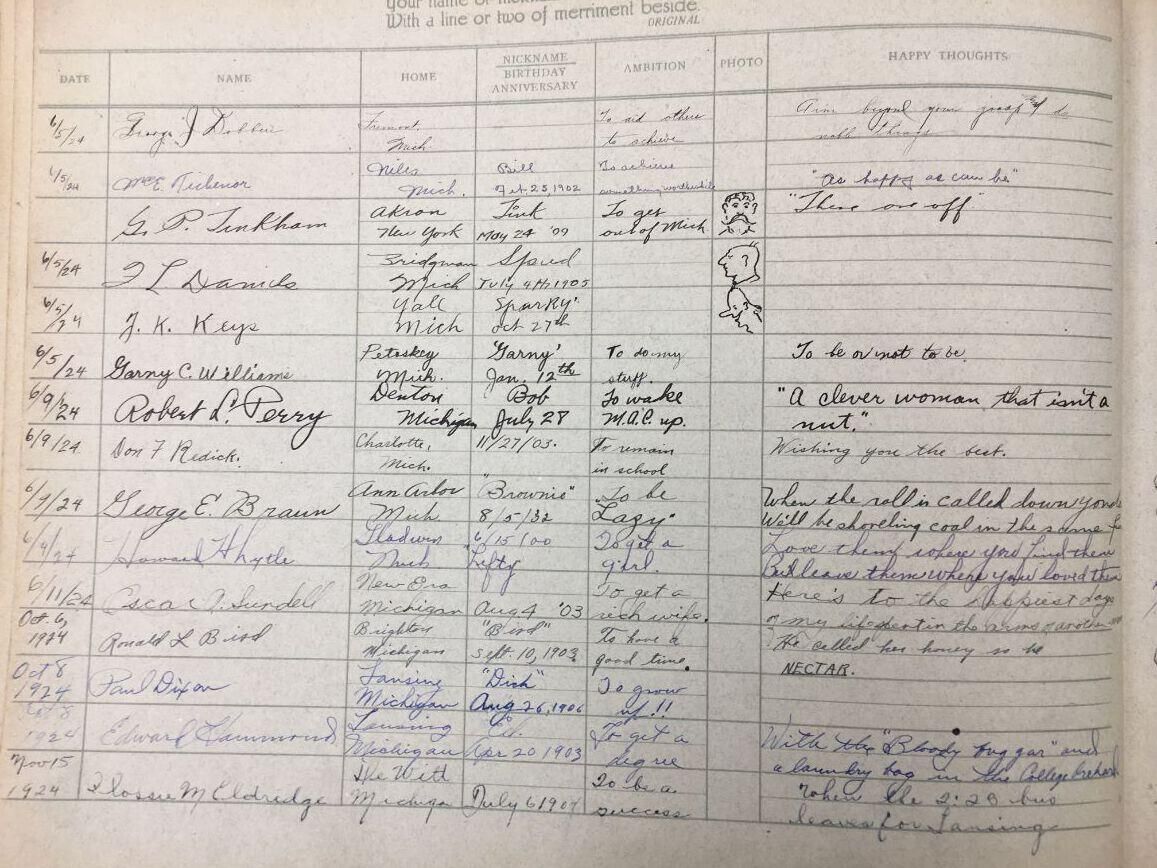 your name or
With a line or two of merriment beside.
ORIGINAL
DATE NAME HOME NICKNAME BIRTHDAY ANNIVERSARY AMBITION PHOTO HAPPY THOUGHTS
6/5/24 George J Fremont, To aid others Aim beyond your grasp & do
Mich. to achieve noble things
6/5/24 Tichenor Niles Bill To achieve "as happy as can be"
Mich. Feb. 25, 1902 something worthwhile
G. P. Tinkham Akron Tink To get "There off"
New York May 24 '09 out of Mich
6/5/24 F L Daniels Bridgman Speed
Mich July 4th 1905
6/5/24 J. K. Keys Yale Sparky
Mich Oct 27th
6/5/24 Garny C. Williams Petoskey 'Garny' To do my To be or not to be
Mich. Jan. 12th stuff.
6/9/24 Robert L. Perry Denton Bob To wake "A clever woman that isn't a
Michigan July 28 M.A.C. up. nut."
6/9/24 Don F Redick. Charlotte, 11/27/03. To remain Wishing you the best.
Mich. in school
6/9/24 George E. Braun Ann Arbor "Brownie" To be When the roll is called down yonder
Mich 8/5/32 Lazy. We'll be shoveling coal in the same
6/9/24 Howard Whytle Gladwin 6/15/00 To get a Love them where you find them
Mich "Lefty girl. But leave them where you loved them
6/11/24 Oscar A. Sundell New Era To get a Here's to the happiest days
Michigan Aug 4 '03 rich wife. of my life spent in the arms of another
Oct. 6, 1924 Ronald L Bird Brighton "Bird" To have a He called her honey so be
Michigan Sept. 10, 1903 good time. NECTAR.
Oct 8 1924 Paul Dixon Lansing "Dick" To grow
Michigan Aug 26, 1906 up!!
Oct 8 1924 Edward Hammond Lansing Ed. To get a With the "Bloody and
Michigan Apr 20 1903 degree a laundry bag in the College
Nov 15 1924 Flossie M Eldridge De Witt To be a When the 2:23 bus
Michigan July 6 190 success leaves for Lansing